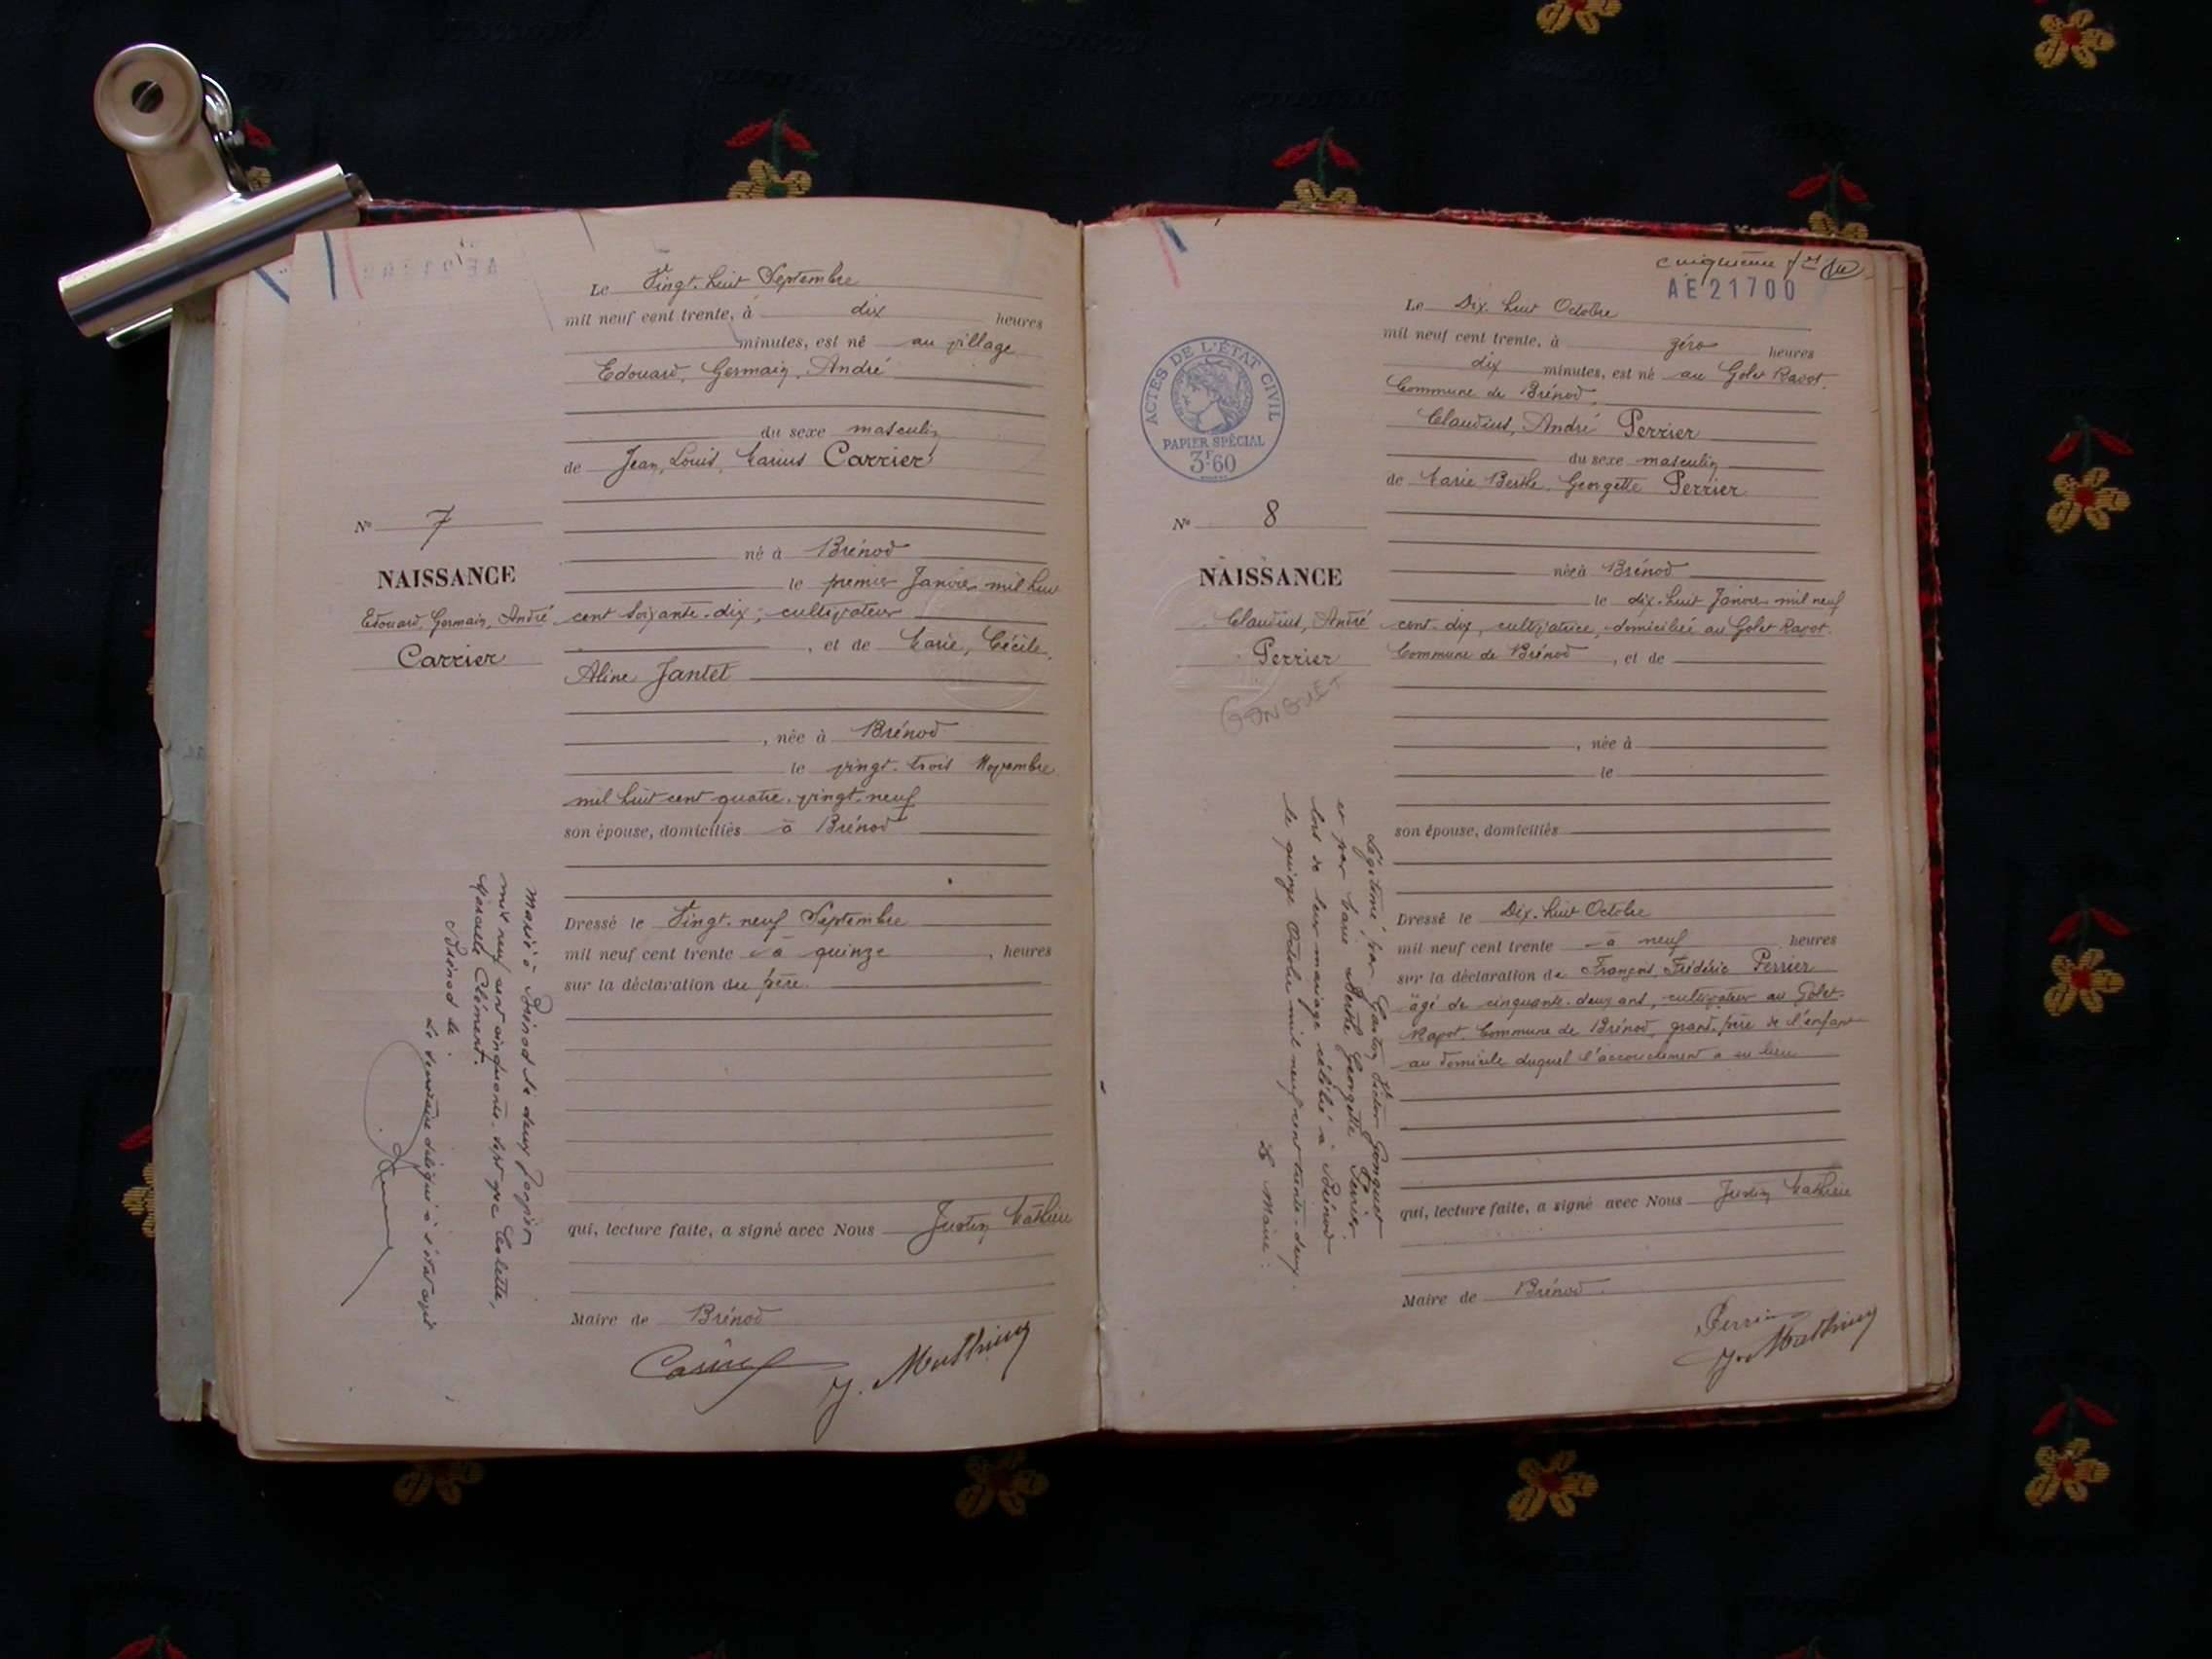 Le Vingt. huit Septembre
mil neuf cent trente, à dix heures
minutes, est né au village
Edouard, Germain, André
du sexe masculin
de Jean, Louis, Marius Carrier
N° 7
né à Brénod
NAISSANCE
le premier Janvier mil huit
Edouard, Germain, André
Carrier
cent soixante-dix ; cultivateur
, et de Marie, Cécile,
Aline Jantet
, née à Brénod
le vingt-trois Novembre
mil huit cent quatre-vingt-neuf
son épouse, domiciliés à Brénod
Dressé le Vingt-neuf Septembre
mil neuf cent trente à quinze , heures
sur la déclaration du père.
qui, lecture faite, a signé avec Nous Justin Mathieu
Maire de Brénod
J. Mathieu
Marié à Brénod le deux Janvier
mil neuf cent cinquante-sept avec Colette,
Marcelle Clément.
Brénod le
Le secrétaire délégué à l'état civil
cinquième
AE21700
Le Dix-huit Octobre
mil neuf cent trente, à zéro heures
dix minutes, est né au Golet Ravot.
Commune de Brénod,
Claudius, André Perrier
du sexe masculin
de Marie Berthe, Georgette Perrier
ACTES DE L'ÉTAT CIVIL
PAPIER SPÉCIAL
3F60
N° 8
née à Brénod
NAISSANCE
le dix-huit Janvier mil neuf
Claudius, André
Perrier
GONGUET
cent-dix, cultivatrice, domiciliée au Golet Ravot.
Commune de Brénod , et de
, née à
le
son épouse, domiciliés
Dressé le Dix-huit Octobre
mil neuf cent trente à neuf heures
sur la déclaration de François, Frédéric Perrier
âgé de cinquante-deux ans, cultivateur au Golet-
Ravot. Commune de Brénod, grand-père de l'enfant
au domicile duquel l'accouchement a eu lieu
qui, lecture faite, a signé avec Nous Justin Mathieu
Maire de Brénod.
Perrier
J. Mathieu
Légitimé par Gaston, Victor Gonguet
et par Marie Berthe Georgette Perrier
lors de leur mariage célébré à Brénod
le quinze Octobre mil neuf cent trente-deux.
Le Maire.